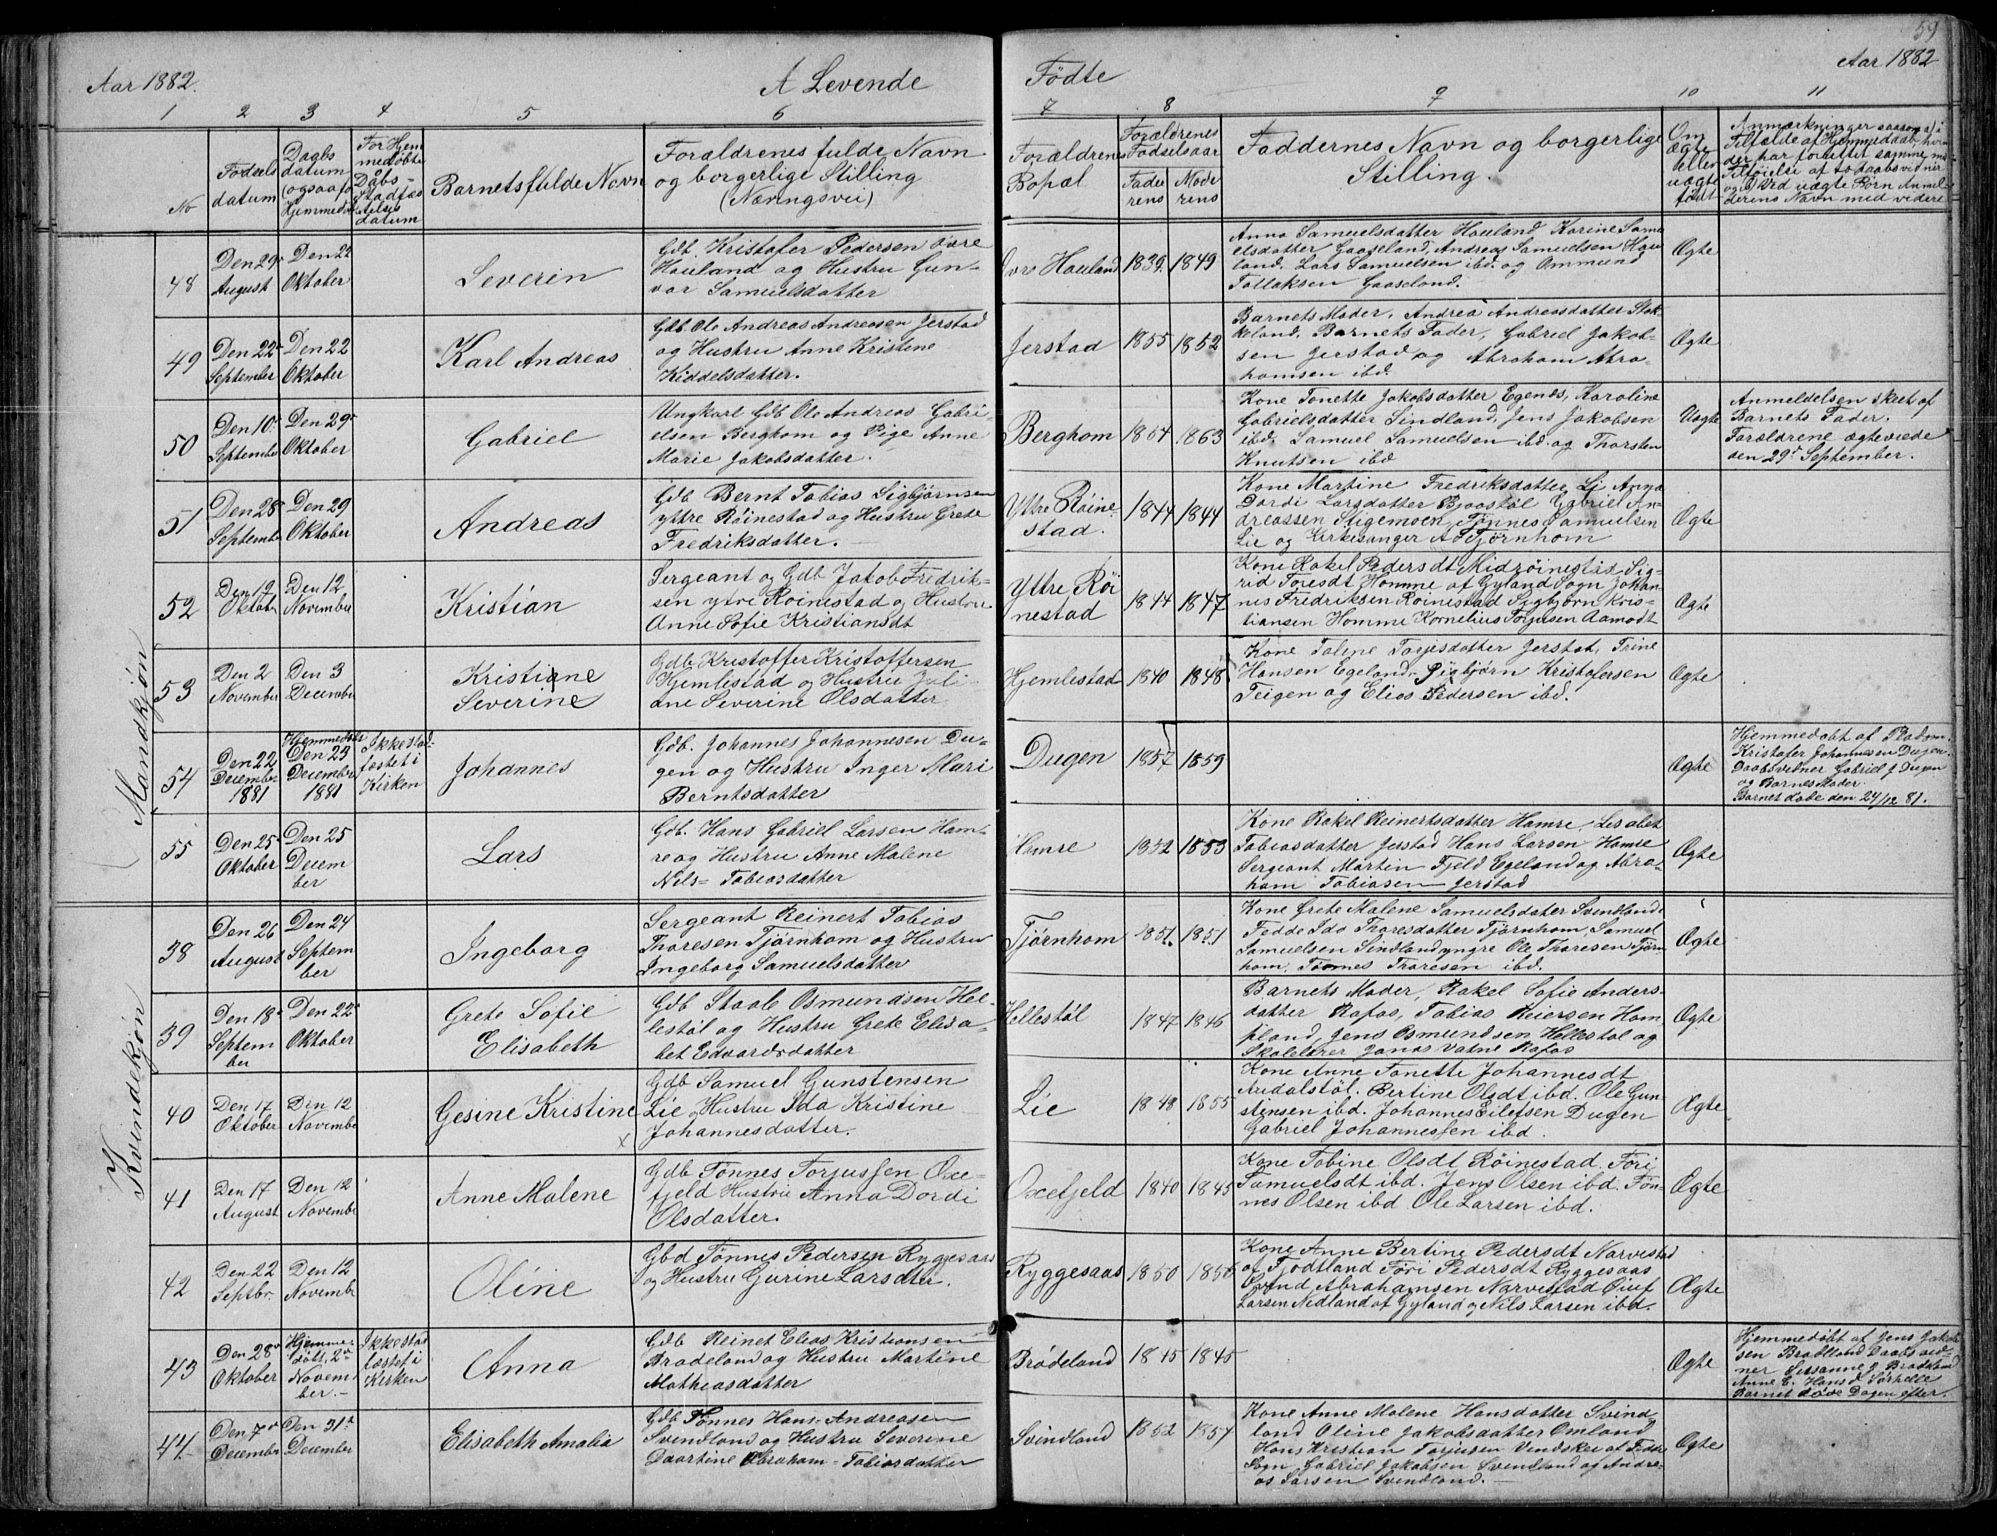 59
Aar 1882.
A Levende
Fødte
Aar 1882
1 2 3 4 5 6 7 8 9 10 11
No
Fødsels
datum
Daabs
datum
(ogsaa for
Hjemmedøbte
For Hjem
medøbte
Daabs-
Stadfæs
telses
datum
Barnets fulde Navn
Forældrenes fulde Navn
og borgerlige Stilling
(Næringsvei)
Forældrenes
Bopæl
Forældrenes
Fødselsaar
Fade
rens
Mode
rens
Faddernes Navn og borgerlige
Stilling.
Om
ægte
eller
uægte
født
Anmærkninger saasom a) i
Tilfælde af Hjemmedaab, hvem
der har forrettet samme med
Tilføielse af to daabsvidner
og b) Ved uægte Børn Anmel
derens Navn med videre
Mandkjøn
48
Den 29
August
Den 22
Oktober
Severin
Gdb. Kristofer Pedersen øvre
Houland og Hustru Gun-
vor Samuelsdatter
Øvre Houland
1839. 1849
Anna Samuelsdatter Houland Karine Samu
elsdatter Gaaseland, Andreas Samuelsen Hou
land. Lars Samuelsen ibd. og Ommund
Tollaksen Gaaseland.
Ægte
49
Den 22
September
Den 22
Oktober
Karl Andreas
Gdb Ole Andreas Andreasen Jerstad
og Hustru Anne Kristine
Kiddelsdatter.
Jerstad
1855 1852
Barnets Moder, Andrea Andreasdatter Stok
keland. Barnets Fader, Gabriel Jakob-
sen Jerstad og Abraham Abra
hamsen ibd.
Ægte
50
Den 10
September
Den 29
Oktober
Gabriel
Ungkarl Gdb Ole Andreas Gabri
elsen Berghom og Pige Anne
Marie Jakobsdatter.
Berghom
1854 1863
Kone Tonette Jakobsdatter Egenes, Karoline
Gabrielsdatter Sindland, Jens Jakobsen
ibd. Samuel Samuelsen ibd. og Thorsten
Knutsen ibd
Uægte
Anmeldelsen skeet af
Barnets Fader.
Forældrene ægteviede
den 29 September.
51
Den 28
September
Den 29
Oktober
Andreas
Gdb Bernt Tobias Sigbjørnsen
ytre Röinestad og Hustru Grete
Fredriksdatter.
Yttre Röine
stad.
1844 1844
Kone Martine Fredriksdatter Li Anna
Dordi Larsdatter Bjaastøl Gabriel An-
dreassen Stigemoen, Tønnes Samuelsen
Lie og Kirkesanger A Tjörnhom
Ægte
52
Den 12
Oktober
Den 12
November
Kristian
Sergeant og Gdb Jakob Fredrik-
sen ytre Roinestad og Hustru
Anne Sofie Kristiansdt
Yttre Röi
nestad
1844 1847
Kone Rakel Pedersdt Midröinestad, Sig-
rid Toresdt Homme af Gyland Sogn Johan-
nes Fredriksen Röinestad Sigbjörn Kris-
tiansen Homme Kornelius Torjusen Aamodt
Ægte
53
Den 2
November
Den 3
December
Kristiane
Severine
Gdb Kristoffer Kristoffersen
Hjemlestad og Hustru Juli
ane Severine Olsdatter
Hjemlestad
1840 1848
Kone Tolene Torjesdatter Jerstat, Trine
Hansen Egeland. Sigbjørn Kristofersen
Teigen og Elias Pedersen ibd.
Ægte
54
Den 22
December
1881
Hjemmedøbt
Den 23
December
1881
Ikke stad-
fæstet i
Kirken
Johannes
Gdb. Johannes Johannesen Du-
gen og Hustru Inger Mari
Berntsdatter
Dugen
1857 1859
Ægte
Hjemmedøbt af
Kristofer Johannesen Dugen
Daabsvidner Gabriel J Dugen
og Barnets Moder
Barnet døde den 24/12 81.
55
Den 25
Oktober
Den 25
Decem
ber
Lars
Gdb. Hans Gabriel Larsen Ham-
re og Hustru Anne Malene
Nils-Tobiasdatter
Hamre
1852 1853
Kone Rakel Reinertsdatter Hamre, Lisabet
Tobiasdatter Jerstad Hans Larsen Hamre
Sergeant Martin Fjeld Egeland og Abra-
ham Tobiasen Jerstad
Ægte
Kvindekjøn
38
Den 26
August
Den 24
Septem
ber
Ingeborg
Sergeant Reinert Tobias
Thoresen Tjørnhom og Hustru
Ingeborg Samuelsdatter
Tjørnhom
1851. 1851
Kone Grete Malene Samuelsdatter Svindland
Fedde Ida Thoresdatter Tjørnhom, Samuel
Samuelsen Sindland yngre Ole Thoresen Tjørn
hom, Tønnes Thoresen ibd.
Ægte
39
Den 18
Septem
ber
Den 22
Oktober
Grete Sofie
Elisabeth
Gdb Staale Osmundsen Hel-
lestøl og Hustru Grete Elisa-
bet Edvardsdatter
Hellestøl
1847 1846
Barnets Moder, Rakel Sofie Anders-
datter Rafos, Tobias Reiersen Hom
pland, Jens Osmundsen Hellestøl og
Skolelærer Jonas Vatne Rafos
Ægte
40
Den 17
Oktober
Den 12
November
Gesine Kristine
x
Gdb Samuel Gunstensen
Lie Hustru Ida Kristine
Johannesdatter.
Lie
1848 1855
Kone Anne Tonette Johannesdt
Audalstøl. Bertine Olsdt ibd. Ole Gun
stensen ibd. Johannes Eilefsen Dugen
Gabriel Johannessen ibd.
Ægte
41
Den 17
August
Den 12
November
Anne Malene
Gdb Tønnes Torjussen Oxe-
fjeld Hustru Anna Dordi
Olsdatter.
Oxefjeld
1840 1845
Kone Tobine Olsdt Röinestad. Töri
Samuelsdt ibd. Jens Olsen ibd. Tøn-
nes Olsen ibd Ole Larsen ibd.
Ægte
42
Den 22
Septbr.
Den 12
November
Oline
Gbd Tönnes Pedersen Ryggesaas
og Hustru Gurine Larsdtr.
Ryggesaas
1850 1850
Kone Anne Bertine Pedersdt Narvestad
af Fjotland Töri Pedersdt Ryggesaas
Svend Abrahamsen Narvestad Eiuf
Larsen Nedland af Gyland og Nils Larsen ibd.
Ægte
43
Den 28
Oktober
Hjemme
døbt, 2
Novem
ber.-
Ikke stad
fæstet i
Kirken
Anna
Gdb Reinet Elias Kristiansen
Brødeland og Hustru Martine
Mathiasdatter
Brødeland
1845 1845
Ægte
Hjemmedøbt af Jens Jakob
sen Brødland Daabsvid-
ner Susanne J Brødland
Anne E. Hansd Sørhelle
Barnet døde Dagen efter.
44
Den 7
December
Den 31
December
Elisabeth Amalia
Gdb Tønnes Hans-Andreasen
Svendland og Hustru Severine
Daartine Abraham-Tobiasdatter
Svindland
1852 1857
Kone Anne Malene Hansdatter Svind
land Oline Jakobsdatter Omland
Hans Kristian Torjusen Vindskei af Fedde
Sogn. Gabriel Jakobsen Svendland og Andre-
as Larsen Svendland.-
Ægte